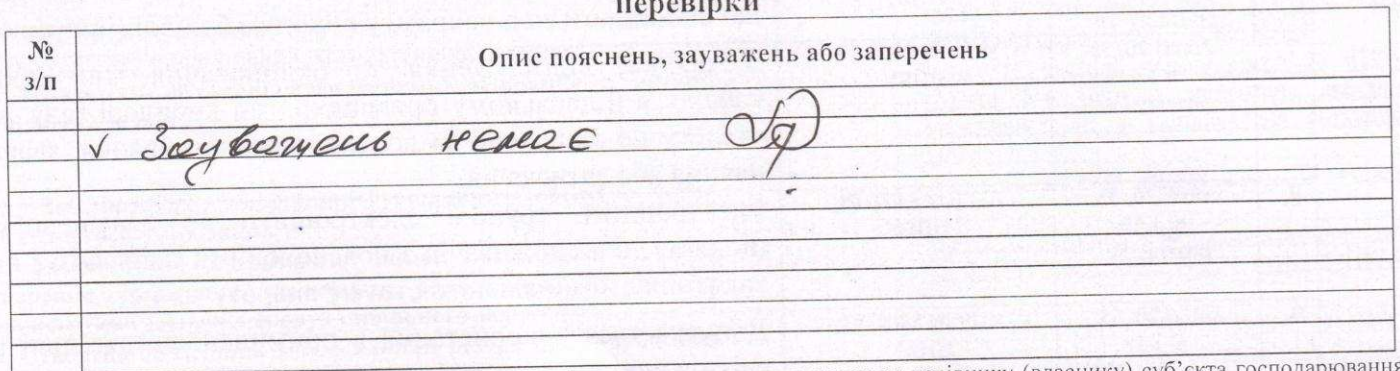 перевірки
№ з/п
Опис пояснень, зауважень або заперечень
v Зауважень немає
(власнику) суб'єкта господарювання